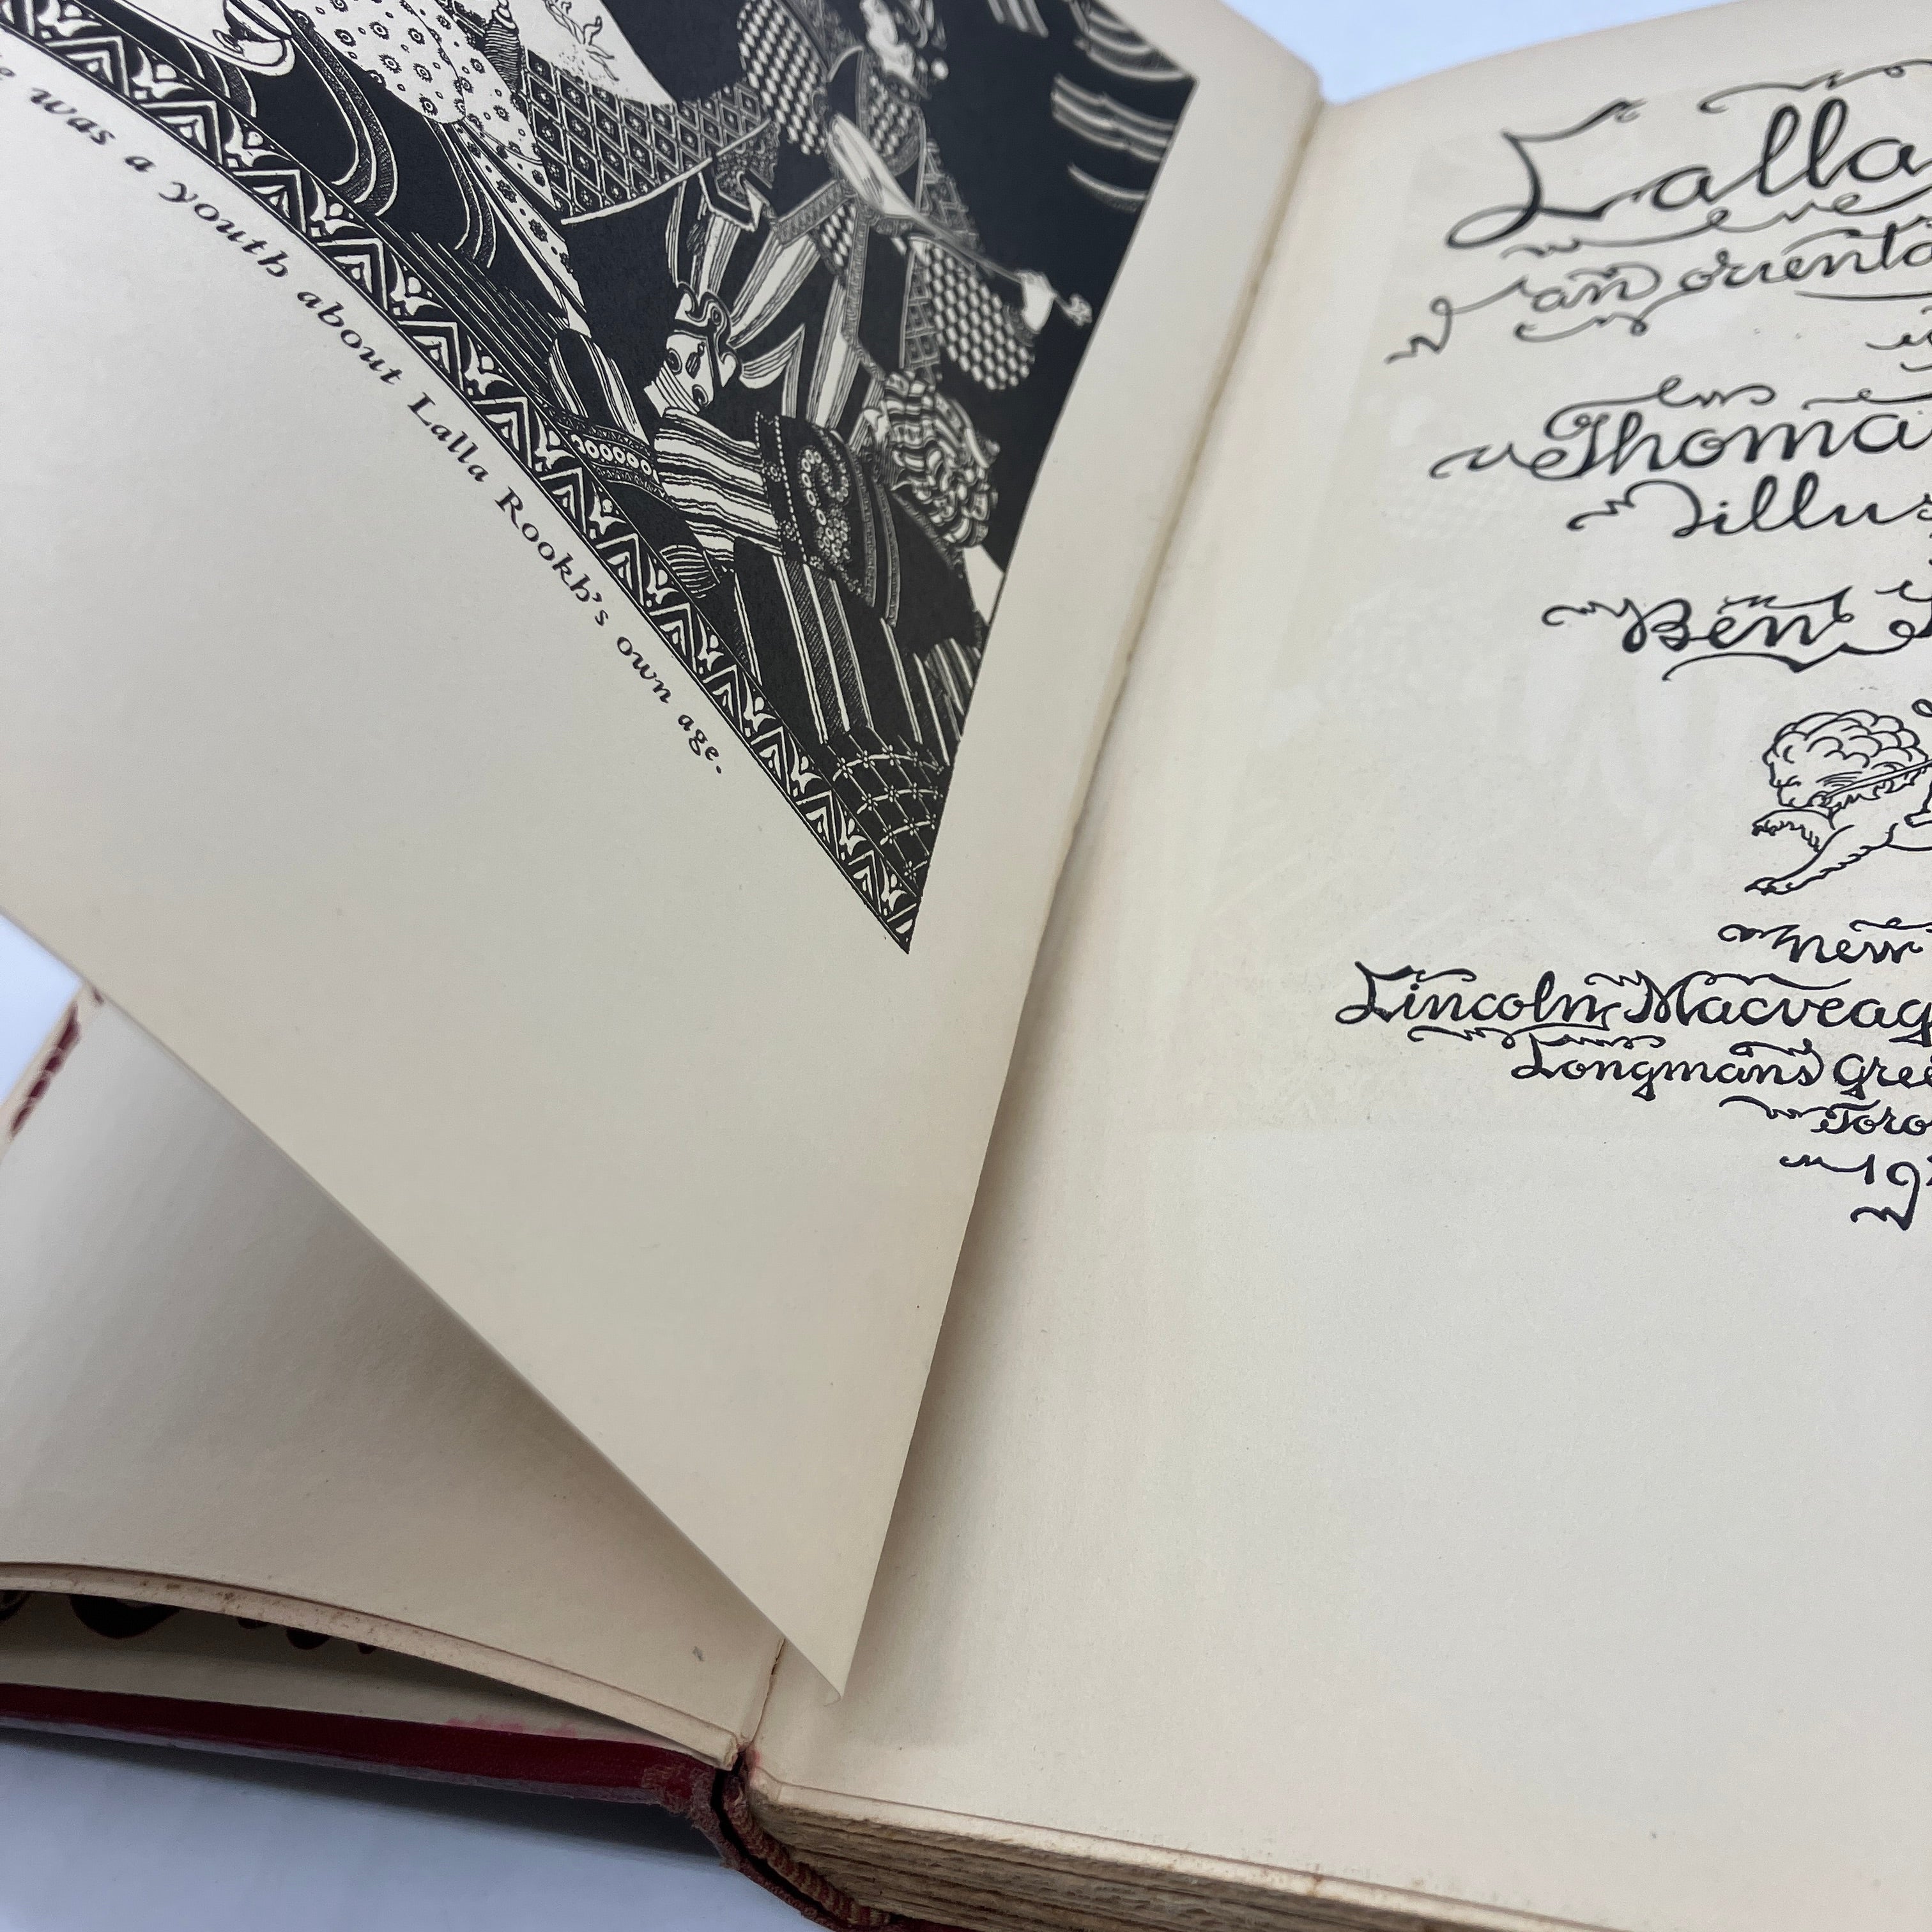 was a youth about Lalla Rookh's own age.
Lalla
an orienta
Thomas
illus
Ben
new
Lincoln Macveag
Longmans Gree
Toro
19